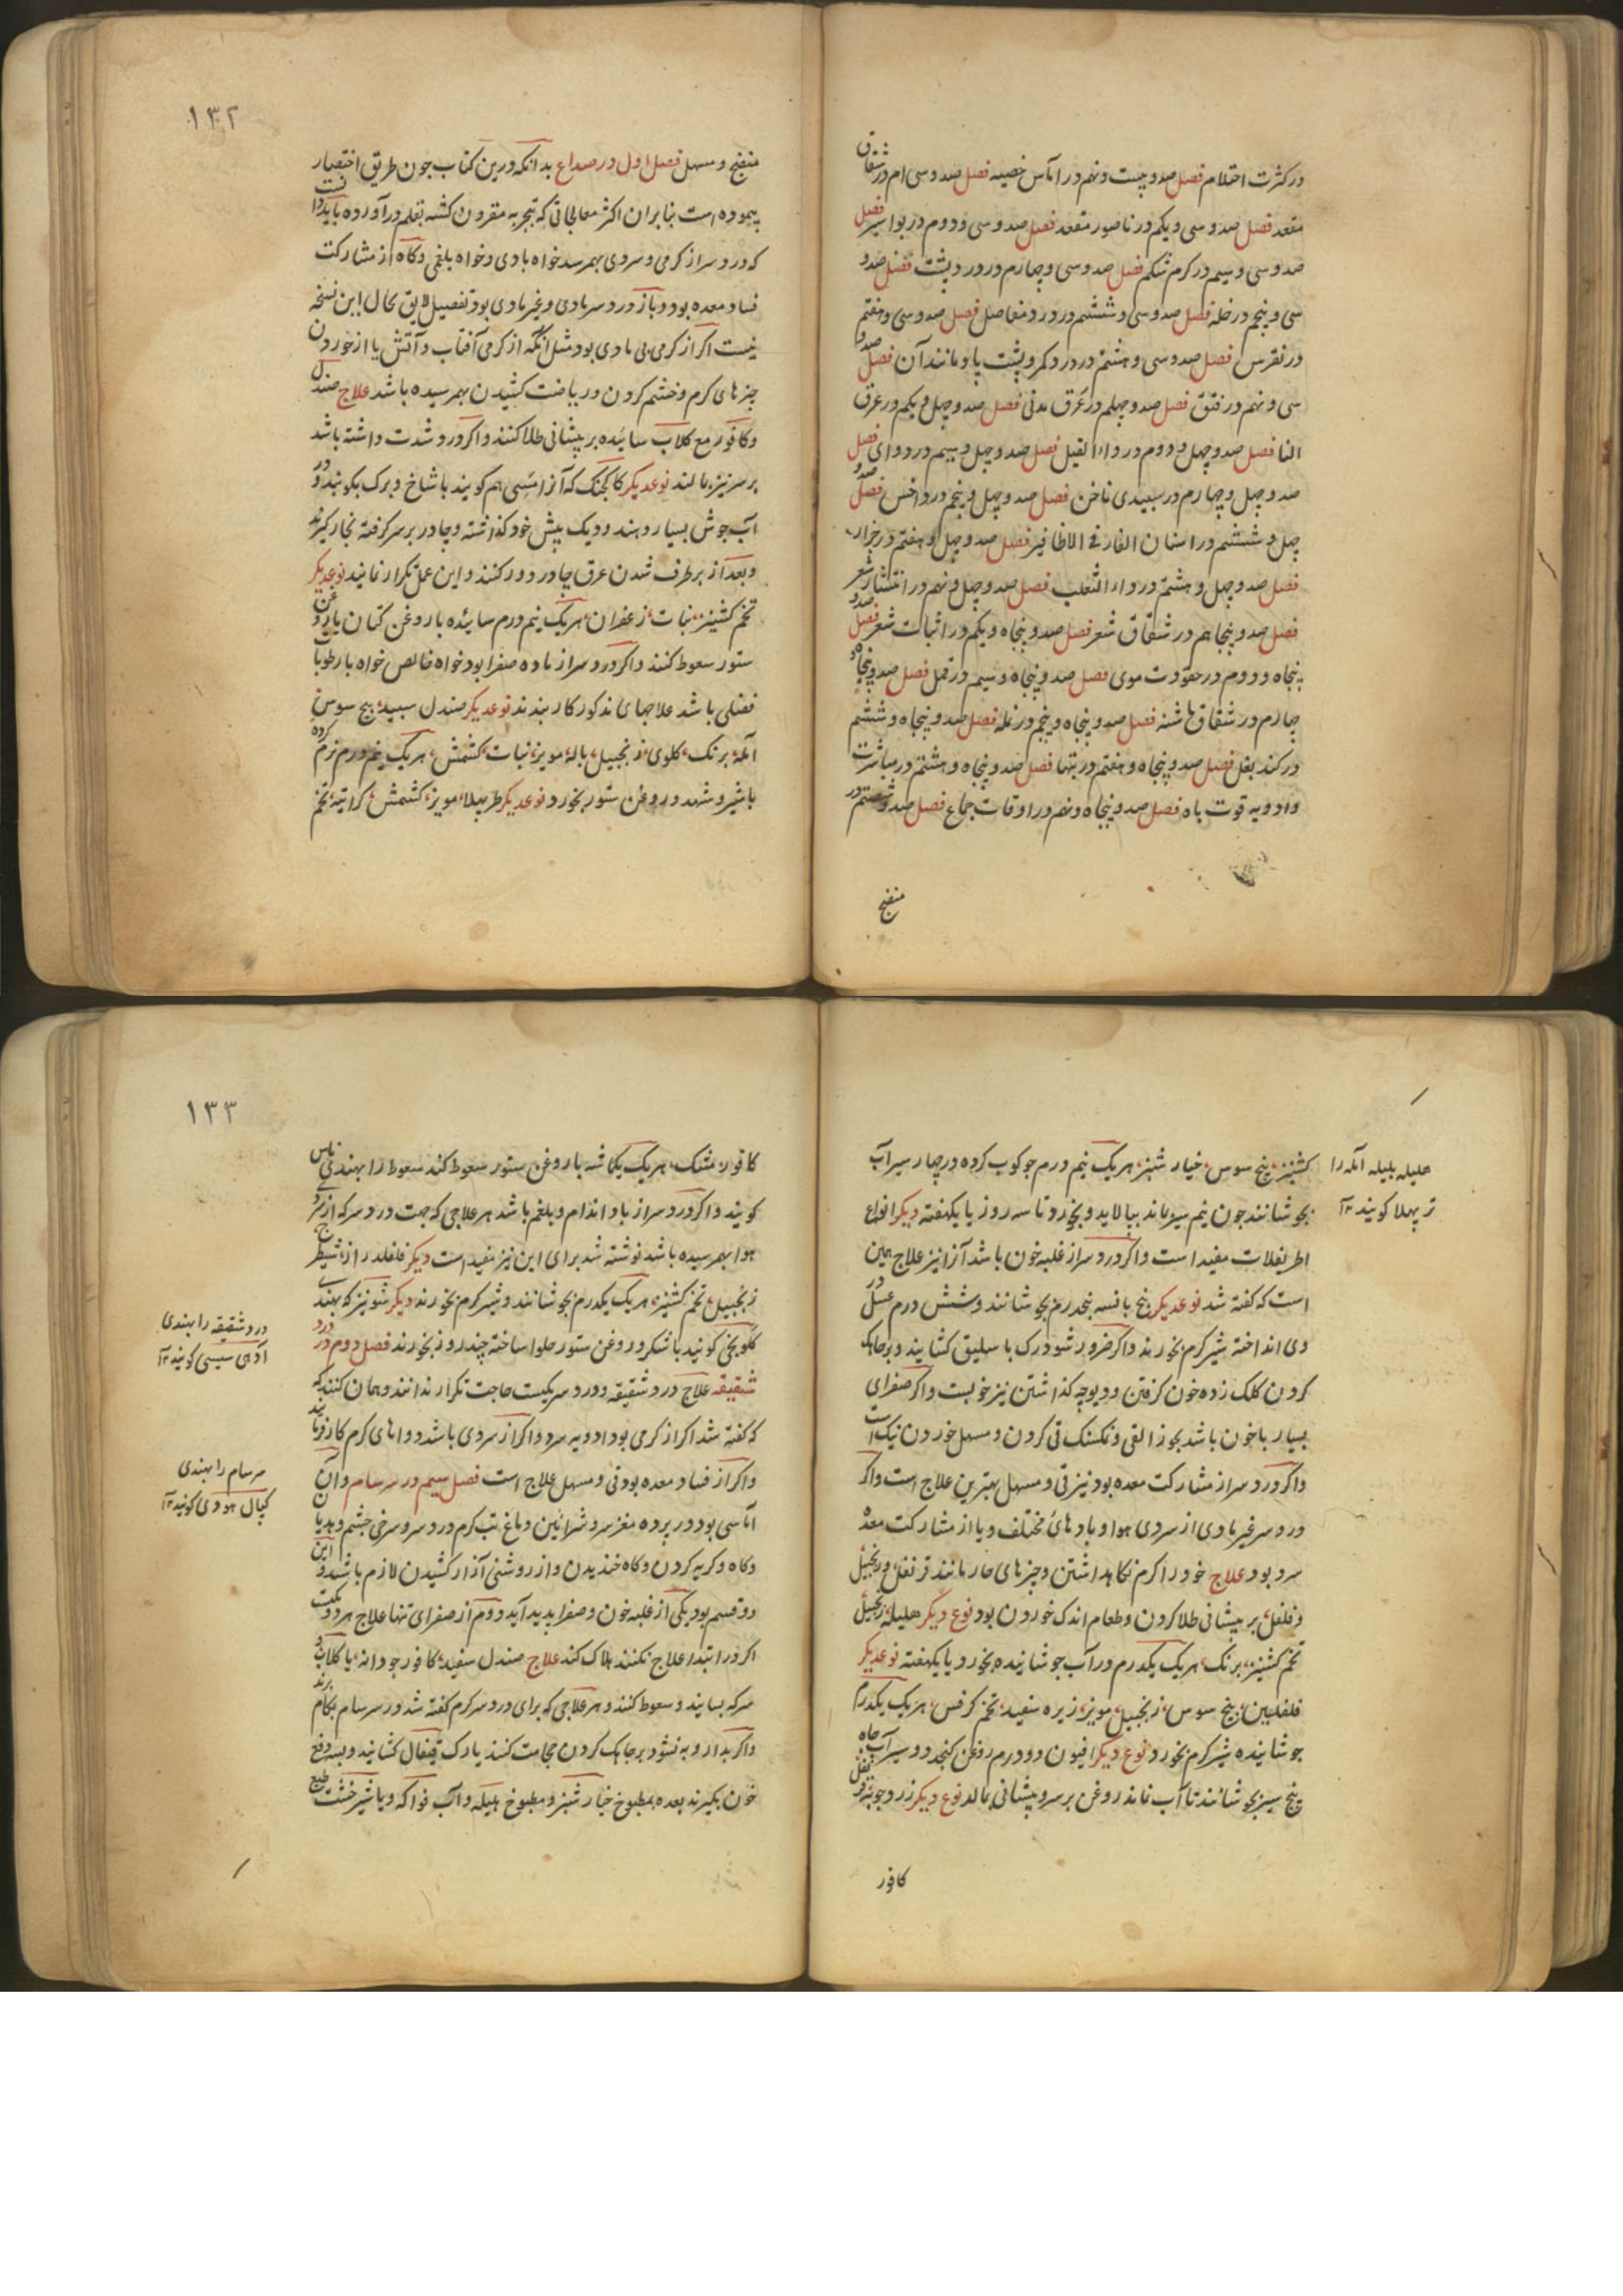 در کثرت احتلام فصل صد و بیست و نهم در آماس خصیه فصل صد و سی ام در شقاق
مقعد فصل صد و سی و یکم در ناصور مقعد فصل صد و سی و دوم در بواسیر فصل
صد و سی و سیم در کرم شکم فصل صد و سی و چهارم در درد پشت فصل صد و
سی و پنجم در خله فصل صد و سی و ششم در درد مفاصل فصل صد و سی و هفتم
در نقرس فصل صد و سی و هشتم در درد کمر و پشت پا و مانند آن فصل صد و
سی و نهم در فتق فصل صد و چهلم در عرق مدنی فصل صد و چهل و یکم در عرق
النسا فصل صد و چهل و دوم در داء الفیل فصل صد و چهل و سیم در دوای فصل
صد و چهل و چهارم در سبیدی ناخن فصل صد و چهل و پنجم در داخس فصل صد و
چهل و ششم در اسنان الفار فی الاظافیر فصل صد و چهل و هفتم در حزاز
فصل صد و چهل و هشتم در داء الثعلب فصل صد و چهل و نهم در انتشار شعر
فصل صد و پنجاهم در شقاق شعر فصل صد و پنجاه و یکم در اثبات شعر فصل صد و
پنجاه و دوم در جعودت موی فصل صد و پنجاه و سیم در قمل فصل صد و پنجاه و
چهارم در شقاق پاشنه فصل صد و پنجاه و پنجم در نمله فصل صد و پنجاه و ششم
در کند بغل فصل صد و پنجاه و هفتم در بتها فصل صد و پنجاه و هشتم در مباشرت
و ادویه قوت باه فصل صد و پنجاه و نهم در اوقات جماع فصل صد و شصتم در
منضج
۱۳۲
منضج و مسهل فصل اول در صداع بدانکه درین کتاب جون طریق اختصار
پیموده است بنابران اکثر معالجاتی که بتجربه مقرون کشته بقلم در آورده باید دانست
که درد سر از کرمی و سردی بهم رسد خواه بادی و خواه بلغمی و کاه از مشارکت
فساد معده بود و باز درد سر مادی و غیر مادی بود تفصیل لایق بحال این نسخه
نیست اکر از کرمی بی مادی بود مثل آنکه از کرمی آفتاب و آتش یا از خوردن
چیزهای کرم و خشم کردن و ریاضت کشیدن بهم رسیده باشد علاج صندل
و کافور مع کلاب سائیده بر پیشانی طلا کنند و اکر درد شدت داشته باشد
بر سر نیز بمالند نوعدیکر کاکجنک که آنرا مسی هم کویند با شاخ و برک بکوبند و در
آب جوش بسیار دهند و دیک پیش خود کذاشته و چادر بر سر کرفته بخار کیرند
و بعد از برطرف شدن عرق چادر دور کنند و این عمل تکرار نمایند نوعدیکر
تخم کشنیز نبات زعفران هر یک نیم درم سائیده با روغن کتان یا روغن
ستور سعوط کنند و اکر درد سر از ماده صفرا بود خواه خالص خواه با رطوبات
فضلی باشد علاجهای مذکور کار بندند نوعدیکر صندل سبید بیخ سوس
آمله برنک کلوی زنجبیل باله مویز نبات کشمش هر یک نیم درم نرم کرده
با شیر و شهد و روغن ستور بخورد نوعدیکر طربهلا مویز کشمش کراتیه تخم
هلیله بلیله آمله را
تربهلا کویند ۱۲
کشنیز بیخ سوس خیار شنبر هر یک نیم درم جو کوب کرده در چهار سیر آب
بجوشانند جون نیم سیر ماند بپالاید و بخورد تا سه روز یا یکهفته دیکر انواع
اطریفلات مفید است و اکر درد سر از غلبه خون باشد آنرا نیز علاج همین
است که کفته شد نوعدیکر بیخ بانسه پنجدرم بجوشانند و شش درم عسل در
وی انداخته شیر کرم بخورند و اکر ضرور شود رک باسلیق کشایند و بر چاهک
کردن کلک زده خون کرفتن و دیوچه کذاشتن نیز خوبست و اکر صفرای
بسیار با خون باشد بجوز القی و نکسنک قی کردن و مسهل خوردن نیک است
و اکر درد سر از مشارکت معده بود نیز قی و مسهل بهترین علاج است و اکر
درد سر غیر مادی از سردی هوا و بادهائ مختلف و یا از مشارکت معده
سرد بود علاج خود را کرم نکاهداشتن و چیزهای حار مانند قرنفل و زنجبیل
و فلفل بر پیشانی طلا کردن و طعام اندک خوردن بود نوع دیکر هلیله زنجبیل
تخم کشنیز برنک هر یک یکدرم در آب جوشانیده بخورد یا یکهفته نوعدیکر
فلفلین بیخ سوس زنجبیل مویز زیره سفید تخم کرفس هر یک یکدرم
جوشانیده شیر کرم بخورد نوع دیکر افیون دو درم روغن کنجد دو سیر آب چاه
پنج سیر بجوشانند تا آب نماند روغن بر سر و پیشانی بمالد نوع دیکر زرد چوبه قرنفل
کافور
۱۳۳
کافور مشک هر یک یکماشه با روغن ستور سعوط کند سعوط را بهندی ناس
کویند و اکر درد سر از باد اندام و بلغم باشد هر علاجی که جهت درد سر که از سردی
هوا بهم رسیده باشد نوشته شد برای این نیز مفید است دیکر فلفلدراز شیطرج
زنجبیل تخم کشنیز هر یک یکدرم بجوشانند و شیر کرم بخورند دیکر شونیز که بهندی
کلونجی کویند با شکر و روغن ستور حلوا ساخته چند روز بخورند فصل دوم در درد
شقیقه علاج درد شقیقه و درد سر یکیست حاجت تکرار ندانند و همان کنند که
که کفته شد اکر از کرمی بود ادویه سرد و اکر از سردی باشد دواهای کرم کار فرمایند
و اکر از فساد معده بود قی و مسهل علاج است فصل سیم در سرسام و آن
آماسی بود در پرده مغز سر و شرائین دماغ تب کرم و درد سر و سرخی چشم و هذیان
و کاه و کریه کردن و کاه خندیدن و از روشنی آزار کشیدن لازم باشد و این
دو قسم بود یکی از غلبه خون و صفرا پدید آید دوم از صفرای تنها علاج هر دو یکیست
اکر در ابتدا علاج نکنند هلاک کند علاج صندل سفید کافور جو دانه با کلاب و
سرکه بسایند و سعوط کنند و هر علاجی که برای درد سر کرم کفته شد در سرسام بکام برند
و اکر بدارو به نشود بر چاهک کردن حجامت کنند یا رک قیفال کشایند و بسه دفع
خون بکیرند بعده بمطبوخ خیار شنبر و مطبوخ هلیله و آب فواکه و یا شیرخشت طبع
درد شقیقه را بهندی
آدهی سیسی کویند ۱۲
سرسام را بهندی
کپال هودی کویند ۱۲